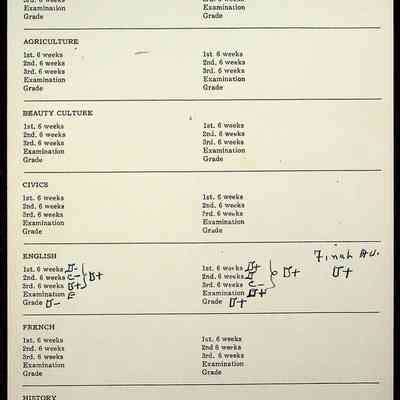 Examination
Grade
Examination
Grade
AGRICULTURE
1st. 6 weeks
2nd. 6 weeks
3rd. 6 weeks
Examination
Grade
1st. 6 weeks
2nd. 6 weeks
3rd. 6 weeks
Examination
Grade
BEAUTY CULTURE
1st. 6 weeks
2nd. 6 weeks
3rd. 6 weeks
Examination
Grade
1st. 6 weeks
2nd. 6 weeks
3rd. 6 weeks
Examination
Grade
CIVICS
1st. 6 weeks
2nd. 6 weeks
3rd. 6 weeks
Examination
Grade
1st. 6 weeks
2nd. 6 weeks
3rd. 6 weeks
Examination
Grade
ENGLISH
1st. 6 weeks D-
2nd. 6 weeks C- D+
3rd. 6 weeks D+
Examination E
Grade D-
1st. 6 weeks D+
2nd. 6 weeks D D+
3rd. 6 weeks C-
Examination D+
Grade D+
Final AV.
D+
FRENCH
1st. 6 weeks
2nd. 6 weeks
3rd. 6 weeks
Examination
Grade
1st. 6 weeks
2nd 6 weeks
3rd. 6 weeks
Examination
Grade
HISTORY